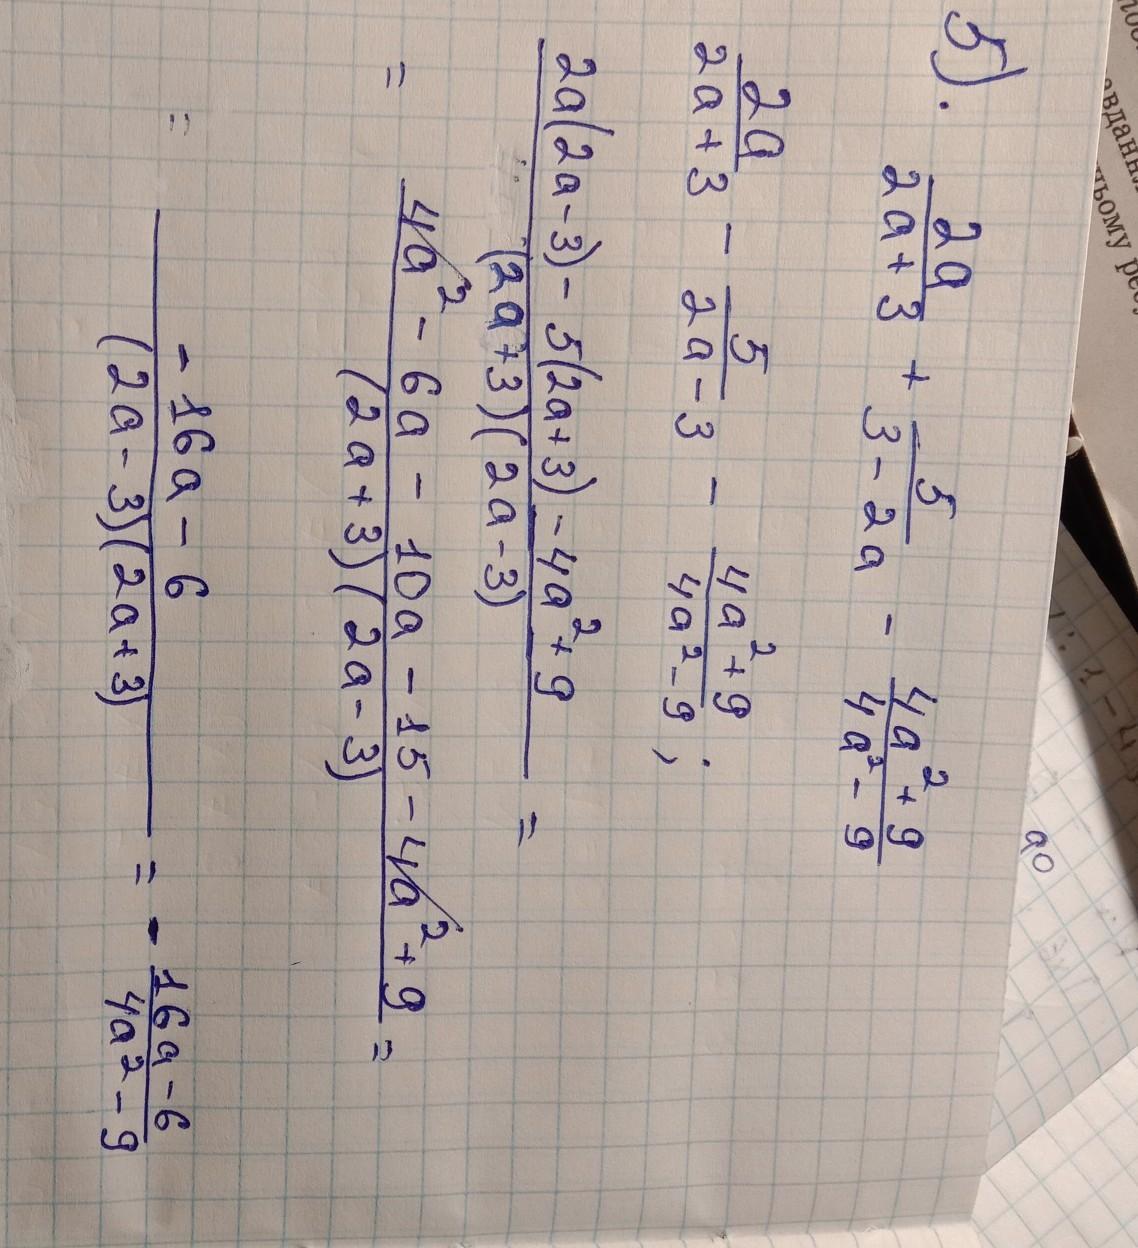 5).
2a/(2a+3) + 5/(3-2a) - (4a²+9)/(4a²-9)
2a/(2a+3) - 5/(2a-3) - (4a²+9)/(4a²-9) ;
(2a(2a-3) - 5(2a+3) - 4a²+9)/((2a+3)(2a-3)) =
= (4a² - 6a - 10a - 15 - 4a² + 9)/((2a+3)(2a-3)) =
= (-16a - 6)/((2a-3)(2a+3)) = - (16a-6)/(4a²-9)
ao